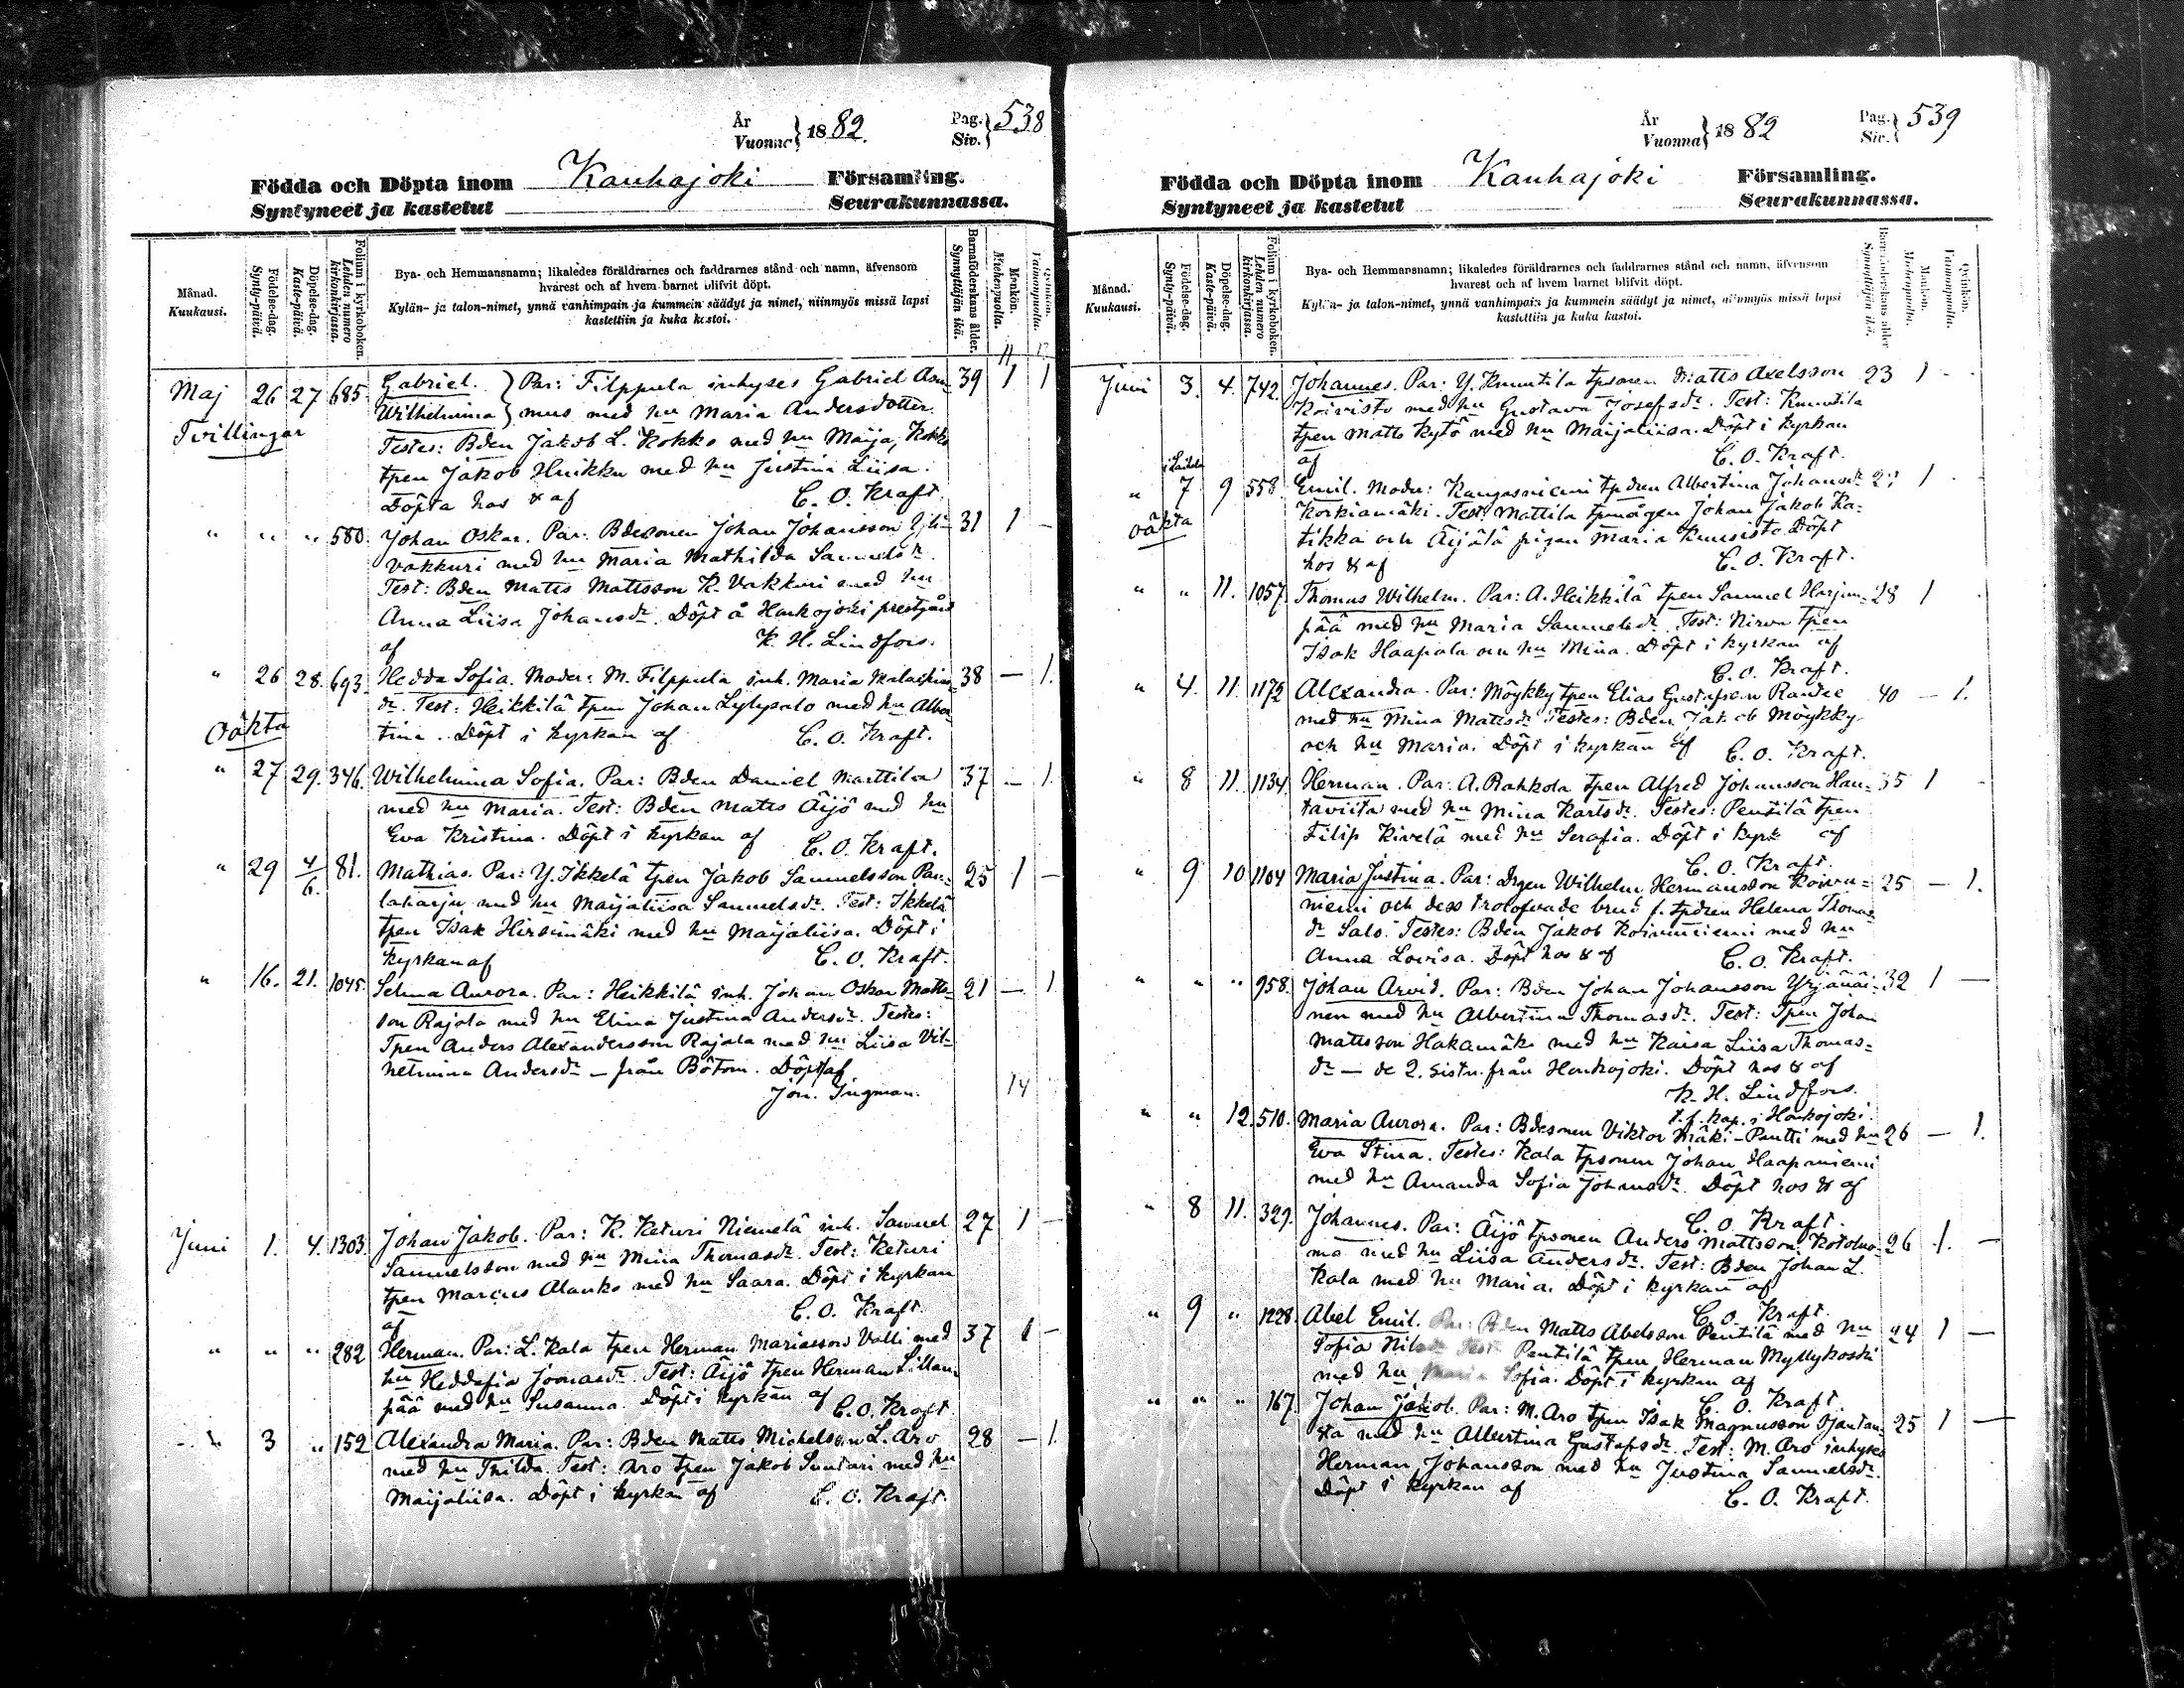 År
Vuonna } 1882.
Pag.
Siv. } 538
Födda och Döpta inom Kauhajoki Församling.
Syntyneet ja kastetut Seurakunnassa.
Månad.
Kuukausi.
Födelse-dag.
Synty-päivä.
Döpelse-dag.
Kaste-päivä.
Folium i kyrkoboken.
Lehden numero kirkonkirjassa.
Bya- och Hemmansnamn; likaledes föräldrarnes och faddrarnes stånd och namn, äfvensom
hvarest och af hvem barnet blifvit döpt.
Kylän- ja talon-nimet, ynnä vanhimpain ja kummein säädyt ja nimet, niinmyös missä lapsi
kastettiin ja kuka kastoi.
Barnaföderskans ålder.
Synnyttäjän ikä.
Mankön.
Miehenpuolta.
Qvinkön.
Vaimonpuolta.
Maj 26 27 685 Gabriel. } Par: Filppula inhyses Gabriel Asm= 39 1 1
Tvillingar Wilhelmina } mus med hu Maria Andersdotter.
Testes: Bden Jakob L. Kokko med hu Maija, Kokko
tpen Jakob Huikku med hu Justina Liisa.
Döpta hos & af C. O. Kraft
" " " 580. Johan Oskar. Par: Bdesonen Johan Johansson Yli= 31 1 —
Vakkuri med hu Maria Mathilda Samuelsdr.
Test: Bden Matts Mattsson K. Vakkuri med hu
Anna Liisa Johansdr. Döpt å Honkojoki prestgård
af K. H. Lindfors.
" 26 28. 693. Hedda Sofia. Moder: M. Filppula inh. Maria Malakias= 38 — 1.
oäkta dr. Test: Heikkilä tpen Johan Lylysalo med hu Alber=
tina. Döpt i kyrkan af C. O. Kraft.
" 27 29. 346. Wilhelmina Sofia. Par: Bden Daniel Marttila 37 — 1.
med hu Maria. Test: Bden Matts Äijö med hu
Eva Kristina. Döpt i kyrkan af C. O. Kraft.
" 29 4/6. 81. Mathias. Par: Y. Ikkelä tpen Jakob Samuelsson Pan= 25 1 —
laharju med hu Maijaliisa Samuelsdr. Test: Ikkelä
tpen Isak Hirsimäki med hu Maijaliisa. Döpt i
kyrkan af C. O. Kraft.
" 16. 21. 1045. Selma Aurora. Par: Heikkilä inh. Johan Oskar Matts= 21 — 1
son Rajala med hu Elina Justina Andersdr. Testes:
Tpen Anders Alexandersson Rajala med hu Liisa Vil=
helmina Andersdr — från Bötom. Döpt af
Jon. Ingman. 14
Juni 1. 4. 1303. Johan Jakob. Par: K. Keturi Niemelä inh. Samuel 27 1 —
Samuelsson med hu Mina Thomasdr. Test: Keturi
tpen Marcus Alanko med hu Saara. Döpt i kyrkan
af C. O. Kraft.
" " " 282 Herman. Par: L. Kala tpen Herman Mariasson Valli med 37 1 —
hu Heddafia Joonasdr. Test: Äijö tpen Herman Lillan=
pää med hu Susanna. Döpt i kyrkan af C. O. Kraft
" 3 " 152 Alexandra Maria. Par: Bden Matts Michelsson L. Aro 28 — 1.
med hu Thilda. Test: Aro tpen Jakob Suutari med hu
Maijaliisa. Döpt i kyrkan af C. O. Kraft.
År
Vuonna } 1882
Pag.
Siv. } 539
Födda och Döpta inom Kauhajoki Församling.
Syntyneet ja kastetut Seurakunnassa.
Månad.
Kuukausi.
Födelse-dag.
Synty-päivä.
Döpelse-dag.
Kaste-päivä.
Folium i kyrkoboken.
Lehden numero kirkonkirjassa.
Bya- och Hemmansnamn; likaledes föräldrarnes och faddrarnes stånd och namn, äfvensom
hvarest och af hvem barnet blifvit döpt.
Kylän- ja talon-nimet, ynnä vanhimpain ja kummein säädyt ja nimet, niinmyös missä lapsi
kastettiin ja kuka kastoi.
Barnaföderskans ålder
Synnyttäjän ikä.
Mankön.
Miehenpuolta.
Qvinkön.
Vaimonpuolta.
Juni 3. 4. 742. Johannes. Par: Y. Knuutila tpsonen Matts Axelsson 23 1 -
Koivisto med hu Gustava Josefsdr. Test: Knuutila
tpen Matts Kytö med hu Maijaliisa. Döpt i kyrkan
af C. O. Kraft.
" 7 9 558. Emil. Moder: Kangasniemi tpdren Albertina Johansdr 27 1
oäkta Korkiamäki. Test: Mattila tpmågen Johan Jakob Ka=
tikka och Äijälä pigan Maria Kuusisto. Döpt
hos & af C. O. Kraft.
" " 11. 1057. Thomas Wilhelm. Par: A. Heikkilä tpen Samuel Harjun= 28 1
pää med hu Maria Samuelsdr. Test: Nirva tpen
Isak Haapala och hu Mina. Döpt i kyrkan af
C. O. Kraft.
" 4. 11. 1172 Alexandra. Par: Möykky tpen Elias Gustafsson 40 — 1.
med hu Mina Mattsdr. Testes: Bden Jakob Möykky
och hu Maria. Döpt i kyrkan af C. O. Kraft.
" 8 11. 1134. Herman. Par: A. Rahkola tpen Alfred Johansson Han= 35 1 -
taviita med hu Mina Karlsdr. Testes: Pentilä tpen
Filip Kivelä med hu Serafia. Döpt i kyrk af
C. O. Kraft.
" 9 10 1104 Maria Justina. Par: Drgen Wilhelm Hermansson Koivu= 25 — 1.
niemi och dess trolofvade brud f. tpdren Helena Thomas
dr Salo. Testes: Bden Jakob Koivuniemi med hu
Anna Lovisa. Döpt hos & af C. O. Kraft.
" " " 958. Johan Arvid. Par: Bden Johan Johansson Yrjänäi= 32 1 —
nen med hu Albertina Thomasdr. Test: Tpen Johan
Mattsson Hakamäki med hu Kaisa Liisa Thomas=
dr — de 2. sistn. från Honkojoki. Döpt hos & af
K. H. Lindfors.
t. f. kap. i Honkojoki.
" " 12. 510. Maria Aurora. Par: Bdesonen Viktor Mäki-Pentti med hu 26 — 1.
Eva Stina. Testes: Kala tpsonen Johan Haapaniemi
med hu Amanda Sofia Johansdr. Döpt hos & af
C. O. Kraft.
" 8 11. 329. Johannes. Par: Äijö tpsonen Anders Mattsson Kotoluo= 26 1. —
ma med hu Liisa Andersdr. Test: Bden Johan L.
Kala med hu Maria. Döpt i kyrkan af
C. O. Kraft.
" 9 " 1228. Abel Emil. Par: Bden Matts Abelsson Pentilä med hu 24 1 —
Sofia Nilsdr. Test: Pentilä tpen Herman Myllykoski
med hu Maria Sofia. Döpt i kyrkan af
C. O. Kraft.
" " " 167. Johan Jakob. Par: M. Aro tpen Isak Magnusson 25 1 —
med hu Albertina Gustafsdr. Test: M. Aro inhyses
Herman Johansson med hu Justina Samuelsdr.
Döpt i kyrkan af C. O. Kraft.